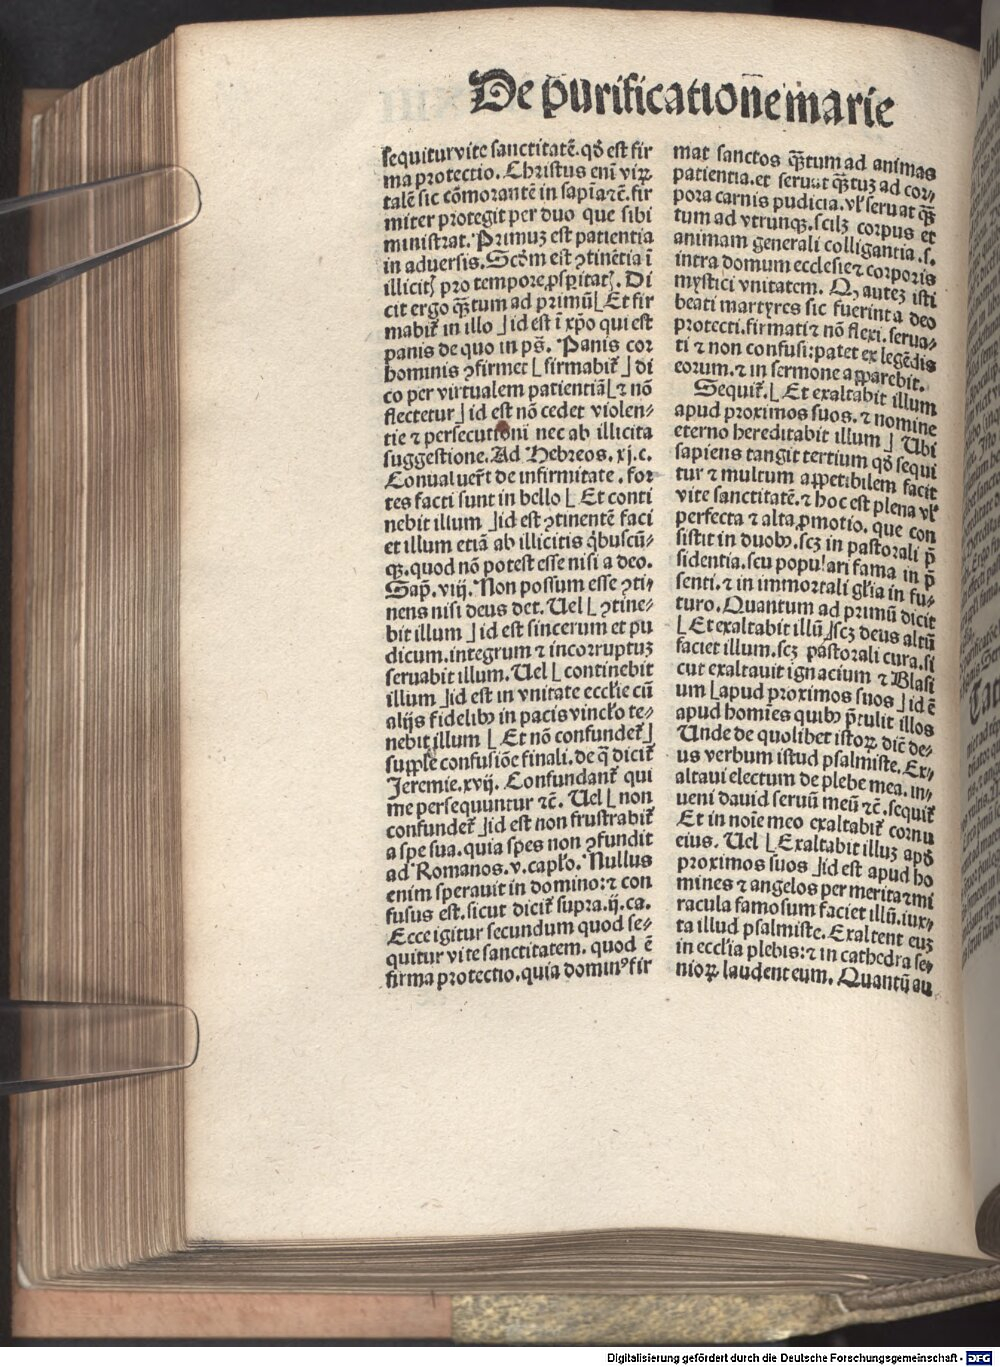 De purificatiōne marie
sequitur vite sanctitatē. qđ est fir
ma protectio. Christus eni viꝝ
talē sic cōmorantē in sapīa ⁊c̄. fir
miter protegit per duo que sibi
ministrat. Primuꝫ est patientia
in aduersis. Scđm est ꝯtinētia ī
illicitꝭ pro tempore ꝓsꝑitatꝭ. Di
cit ergo qꝫtum ad primū ⌊ Et fir
mabit̃ in illo ⌋ id est ī xp̄o qui est
panis de quo in ps̄. Panis cor
hominis ꝯfirmet ⌊ firmabit̃ ⌋ di
co per virtualem patientiā ⌊ ⁊ nō
flectetur ⌋ id est nō cedet violen⸗
tie ⁊ persecutioni nec ab illicita
suggestione. Ad Hebreos. xj. c.
Conualuer̃t de infirmitate. for
tes facti sunt in bello ⌊ Et conti
nebit illum ⌋ id est ꝯtinentē faci
et illum etiā ab illicitis q̇buscū⸗
qꝫ. quod nō potest esse nisi a deo.
Sap̄. viij. Non possum esse ꝯti⸗
nens nisi deus det. Uel ⌊ ꝯtine⸗
bit illum ⌋ id est sincerum et pu
dicum. integrum ⁊ incorruptuꝫ
seruabit illum. Uel ⌊ continebit
illum ⌋ id est in vnitate eccl̃ie cū
alijs fidelibꝰ in pacis vincl̃o te⸗
nebit illum ⌊ Et nō confundet̃ ⌋
supple confusiōe finali. de q̄ dicit̃
Jeremie. xvij. Confundant̃ qui
me persequuntur ⁊c̄. Uel ⌊ non
confundet̃ ⌋ id est non frustrabit̃
a spe sua. quia spes non ꝯfundit
ad Romanos. v. capl̃o. Nullus
enim sperauit in domino: ⁊ con
fusus est. sicut dicit̃ supra. ij. ca.
Ecce igitur secundum quod se⸗
quitur vite sanctitatem. quod ē
firma protectio. quia dominꝰ fir
mat sanctos qꝫtum ad animas
patientia. et seruat qꝫtuꝫ ad cor⸗
pora carnis pudicia. vl̃ seruat qꝫ
tum ad vtrunqꝫ. scilꝫ corpus et
animam generali colligantia. s.
intra domum ecclesie ⁊ corporis
mystici vnitatem. Q, auteꝫ isti
beati martyres sic fuerint a deo
protecti. firmati ⁊ nō flexi. serua⸗
ti ⁊ non confusi: patet ex legēdis
eorum. ⁊ in sermone apparebit.
Sequit̃. ⌊ Et exaltabit illum
apud proximos suos. ⁊ nomine
eterno hereditabit illum ⌋ Ubi
sapiens tangit tertium qđ sequi
tur ⁊ multum appetibilem facit
vite sanctitatē. ⁊ hoc est plena vl̃
perfecta ⁊ alta ꝓmotio. que con
sistit in duobꝰ. scꝫ in pastorali p̄
sidentia. seu populari fama in p̄
senti. ⁊ in immortali gl̃ia in fu⸗
turo. Quantum ad primū dicit
⌊ Et exaltabit illū ⌋ scꝫ deus altū
faciet illum. scꝫ pastorali cura. si
cut exaltauit ignacium ⁊ Blasi
um ⌊ apud proximos suos ⌋ id ē
apud homīes quibꝰ p̄tulit illos
Unde de quolibet istoꝝ dic̄ de⸗
us verbum istud psalmiste. Ex⸗
altaui electum de plebe mea. in⸗
ueni dauid seruū meū ⁊c̄. sequit̃
Et in noīe meo exaltabit̃ cornu
eius. Uel ⌊ Exaltabit illuꝫ apđ
proximos suos ⌋ id est apud ho
mines ⁊ angelos per merita ⁊ mi
racula famosum faciet illū. iux⸗
ta illud psalmiste. Exaltent euꝫ
in eccl̃ia plebis: ⁊ in cathedra se⸗
nioꝝ laudent eum. Quantū au
Digitalisierung gefördert durch die Deutsche Forschungsgemeinschaft - DFG